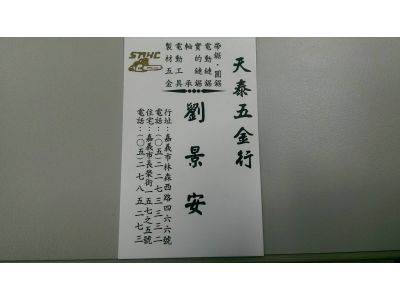 天泰五金行
帶鋸·圓鋸
電動鏈鋸
實的鏈鋸
軸承
電動工具
製材五金
STIHL
劉景安
行址:嘉義市林森西路四六六號
電話:(〇五)二二七三三三二
住宅:嘉義市長榮街一五七之五號
電話:(〇五)二七八五二七三